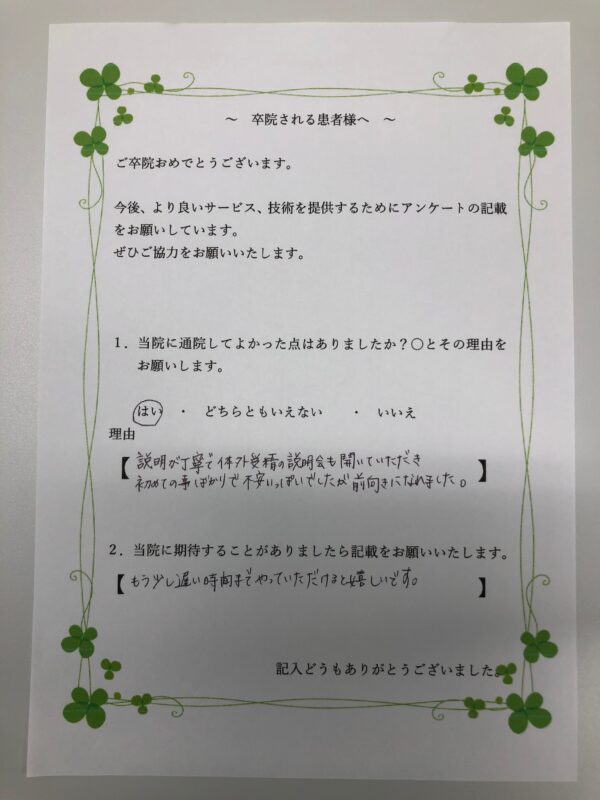 ～　卒院される患者様へ　～
ご卒院おめでとうございます。
今後、より良いサービス、技術を提供するためにアンケートの記載
をお願いしています。
ぜひご協力をお願いいたします。
1．当院に通院してよかった点はありましたか？〇とその理由を
お願いします。
はい　・　どちらともいえない　・　いいえ
理由
【説明が丁寧で体外受精の説明会も開いていただき
初めての事ばかりで不安いっぱいでしたが前向きになれました。】
2．当院に期待することがありましたら記載をお願いいたします。
【もう少し遅い時間までやっていただけると嬉しいです。】
記入どうもありがとうございました。